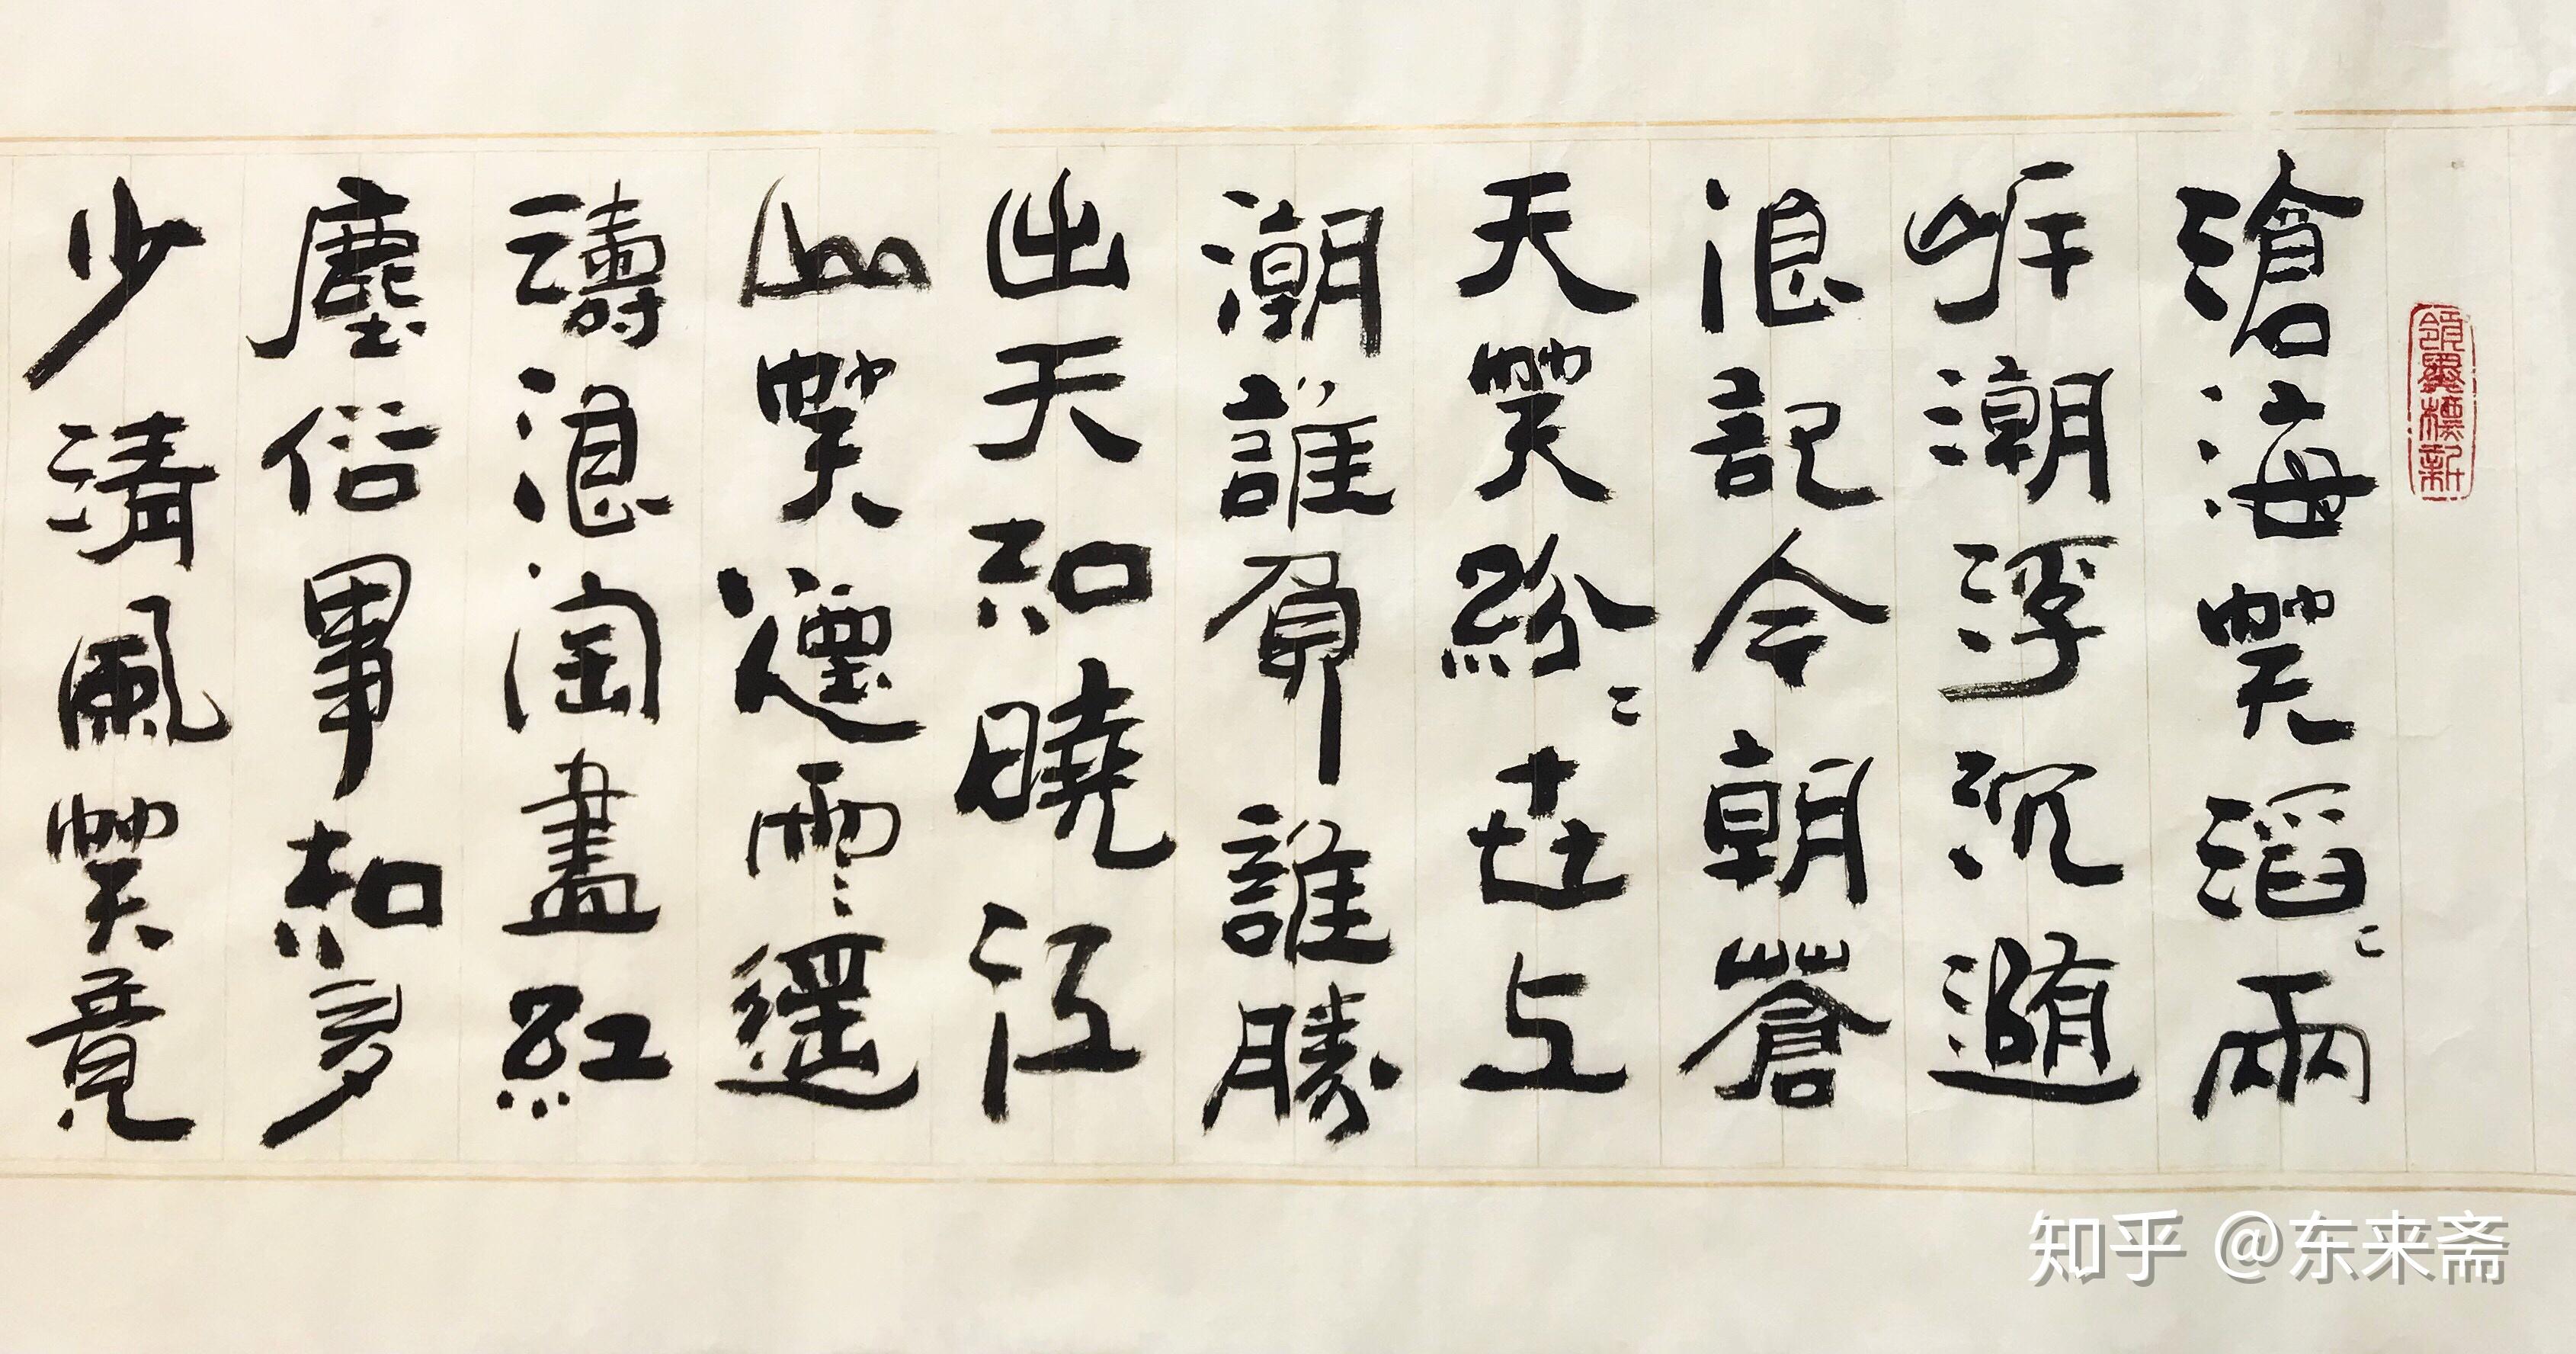 領異標新
滄海笑滔〻兩
岸潮浮沉隨
浪記今朝蒼
天笑紛〻世上
潮誰負誰勝
出天知曉江
山笑煙雨遥
濤浪淘盡紅
塵俗事知多
少清風笑竟
知乎 @东来斋